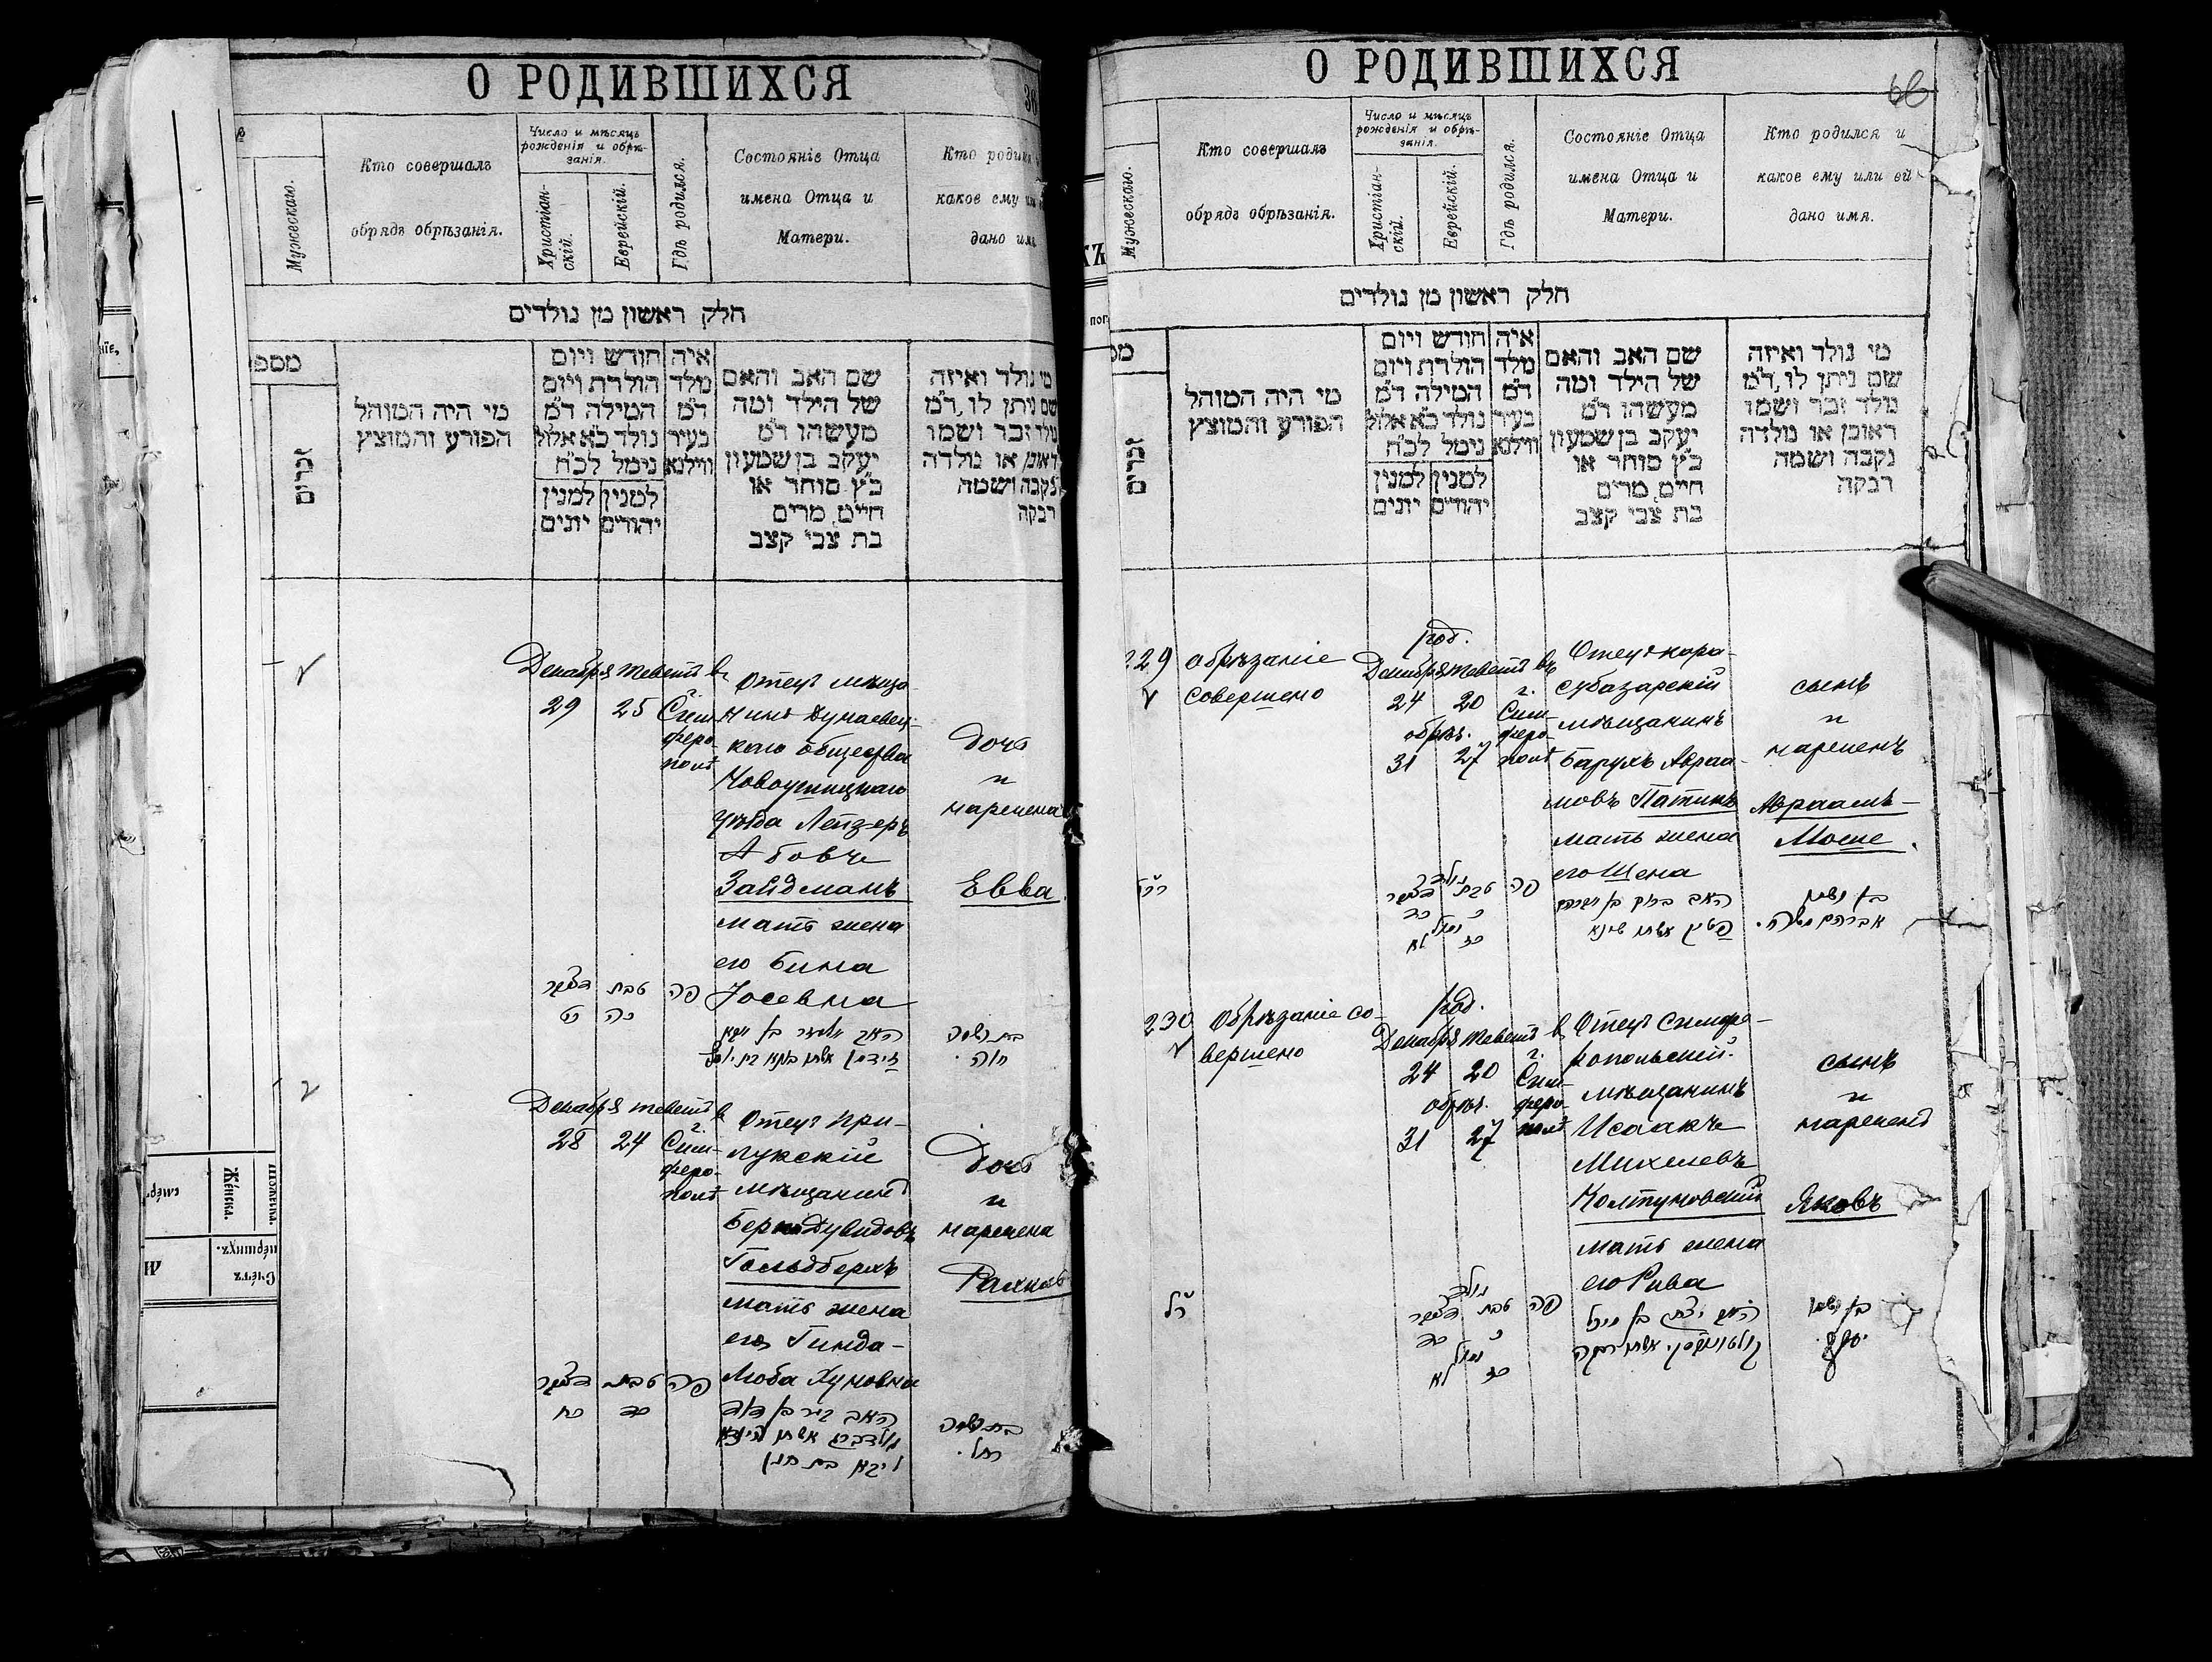 О РОДИВШИХСЯ
38
Мужескаго.
Кто совершалъ
обрядъ обрѣзанія.
Число и мѣсяцъ
рожденія и обрѣ-
занія.
Христіан-
скій.
Еврейскій.
Гдѣ родился.
Состояніе Отца
имена Отца и
Матери.
Кто родился
какое ему или
дано имя
חלק ראשון מן נולדים
זכרים
מי היה המוהל
הפורע והמוצץ
חודש ויום
הולדת ויום
המילה ד״מ
נולד כ״א אלול
נימל לכ״ח
למנין למנין
יהודים יונים
איה
מלד
ד״מ
בעיר
ווילנא
שם האב והאם
של הילד ומה
מעשהו ד״מ
יעקב בן שמעון
כ״ץ סוחר או
חייט, מרים
בת צבי קצב
מי נולד ואיזה
שם ניתן לו, ד״מ
נולד זכר ושמו
ראובן או נולדה
נקבה ושמה
רבקה
Декабря Теветъ в
29 25
г.
Сим-
феро-
полѣ
Отецъ мѣща-
нинъ Дунаевец-
каго общества
Новоушицкаго
уѣзда Лейзеръ
Абовъ
Зайдманъ
мать жена
его Бина
Іосевна
дочь
и
наречена
Евва
דצמבר טבת פה
כט כה
חוה
Декабря Тевета в
28 24
г.
Сим-
феро-
полѣ
Отецъ При-
лукскій
мѣщанинъ
Берко Дувидовъ
Гольдбергъ
мать жена
его Гинда-
Люба Хуновна
дочь
и
наречена
Рахиль
דצמבר טבת פה
כח כד
רחל
О РОДИВШИХСЯ
66
Мужескаго.
Кто совершалъ
обрядъ обрѣзанія.
Число и мѣсяцъ
рожденія и обрѣ-
занія.
Христіан-
скій.
Еврейскій.
Гдѣ родился.
Состояніе Отца
имена Отца и
Матери.
Кто родился и
какое ему или ей
дано имя.
חלק ראשון מן נולדים
זכרים
מי היה המוהל
הפורע והמוצץ
חודש ויום
הולדת ויום
המילה ד״מ
נולד כ״א אלול
נימל לכ״ח
למנין למנין
יהודים יונים
איה
מלד
ד״מ
בעיר
ווילנא
שם האב והאם
של הילד ומה
מעשהו ד״מ
יעקב בן שמעון
כ״ץ סוחר או
חייט, מרים
בת צבי קצב
מי נולד ואיזה
שם ניתן לו, ד״מ
נולד זכר ושמו
ראובן או נולדה
נקבה ושמה
רבקה
229 Обрѣзаніе
совершено
род.
Декабря Тевета въ
24 20
обрѣз.
31 27
г.
Сим-
феро-
полѣ
Отецъ кара-
субазарскій
мѣщанинъ
Барухъ Авраа-
мовъ Патикъ
мать жена
его Шена
сынъ
и
нареченъ
Авраамъ-
Моше.
נולד
דצמבר טבת פה
כד כ
נימל
לא כז
אברהם משה.
230 Обрѣзаніе со-
вершено
род.
Декабря Тевета в
24 20
обрѣз.
31 27
г.
Сим-
феро-
полѣ
Отецъ Симфе-
ропольскій
мѣщанинъ
Исаакъ
Михелевъ
Колтуновскій
мать жена
его Рива
сынъ
и
нареченъ
Яковъ
ר״ל
נולד
דצמבר טבת פה
כד כ
נימל
לא כז